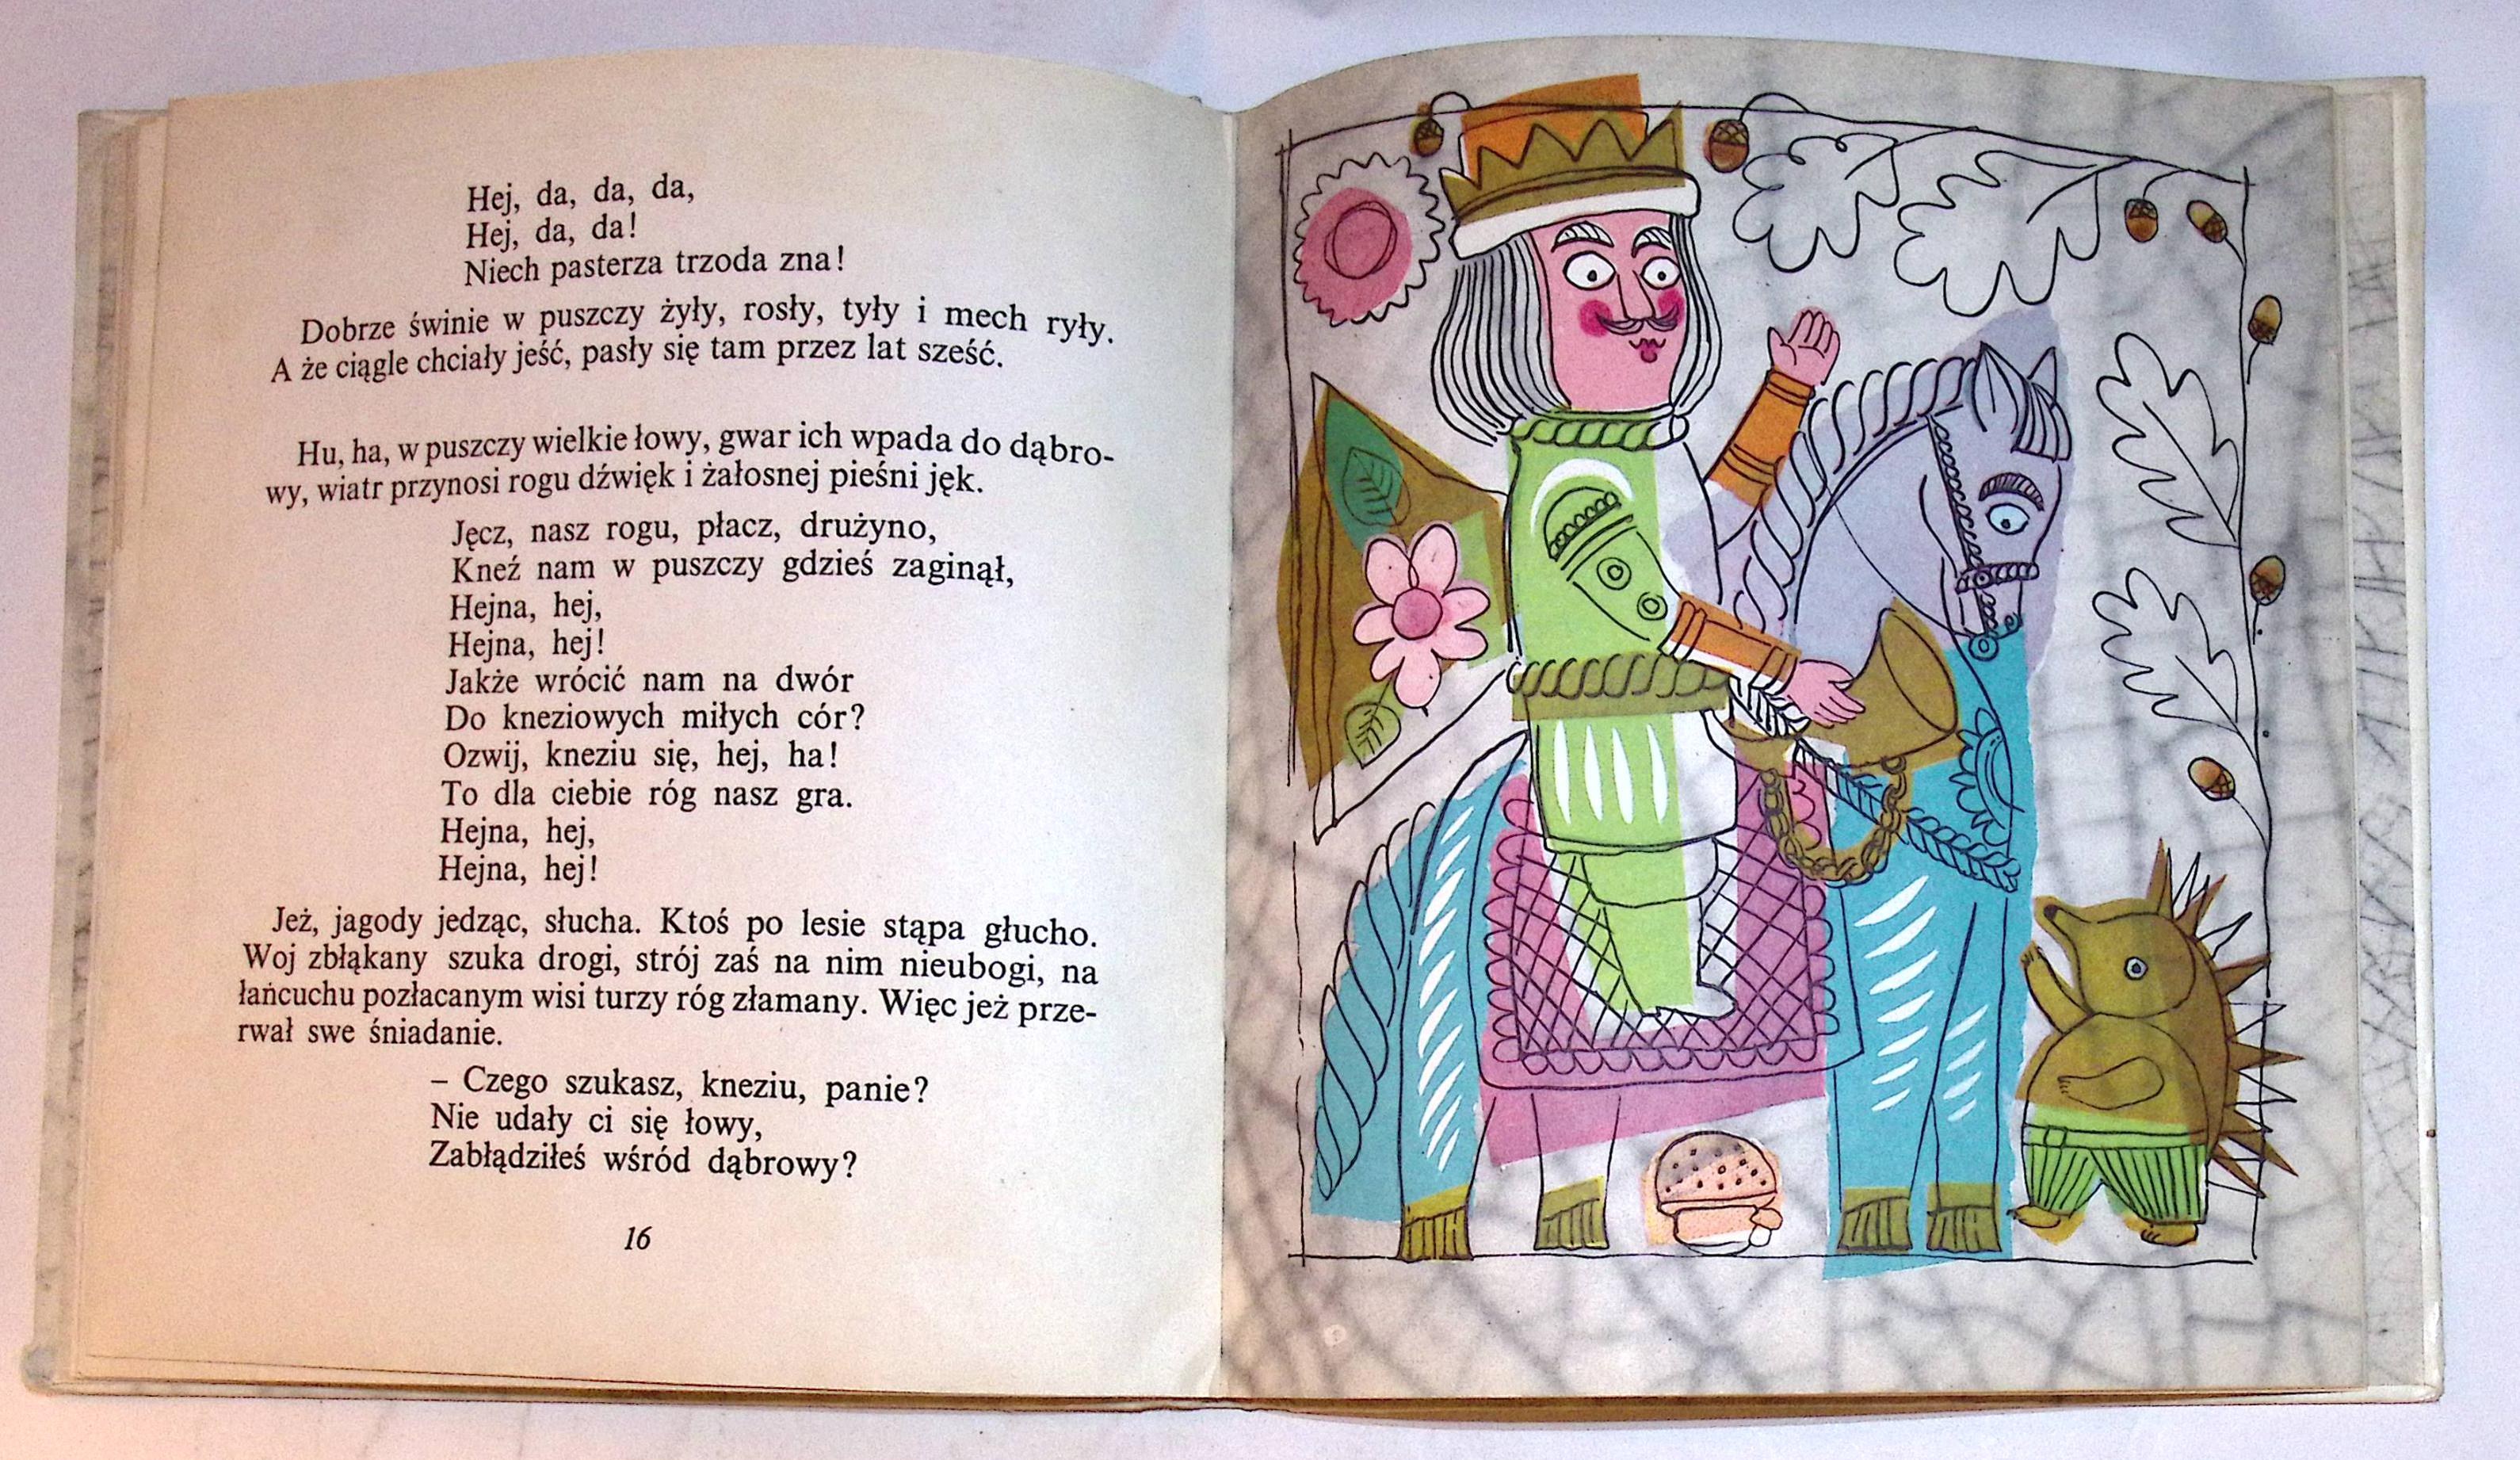 Hej, da, da, da,
Hej, da, da!
Niech pasterza trzoda zna!
Dobrze świnie w puszczy żyły, rosły, tyły i mech ryły.
A że ciągle chciały jeść, pasły się tam przez lat sześć.
Hu, ha, w puszczy wielkie łowy, gwar ich wpada do dąbro-
wy, wiatr przynosi rogu dźwięk i żałosnej pieśni jęk.
Jęcz, nasz rogu, płacz, drużyno,
Kneź nam w puszczy gdzieś zaginął,
Hejna, hej,
Hejna, hej!
Jakże wrócić nam na dwór
Do kneziowych miłych cór?
Ozwij, kneziu się, hej, ha!
To dla ciebie róg nasz gra.
Hejna, hej,
Hejna, hej!
Jeż, jagody jedząc, słucha. Ktoś po lesie stąpa głucho.
Woj zbłąkany szuka drogi, strój zaś na nim nieubogi, na
łańcuchu pozłacanym wisi turzy róg złamany. Więc jeż prze-
rwał swe śniadanie.
– Czego szukasz, kneziu, panie?
Nie udały ci się łowy,
Zabłądziłeś wśród dąbrowy?
16